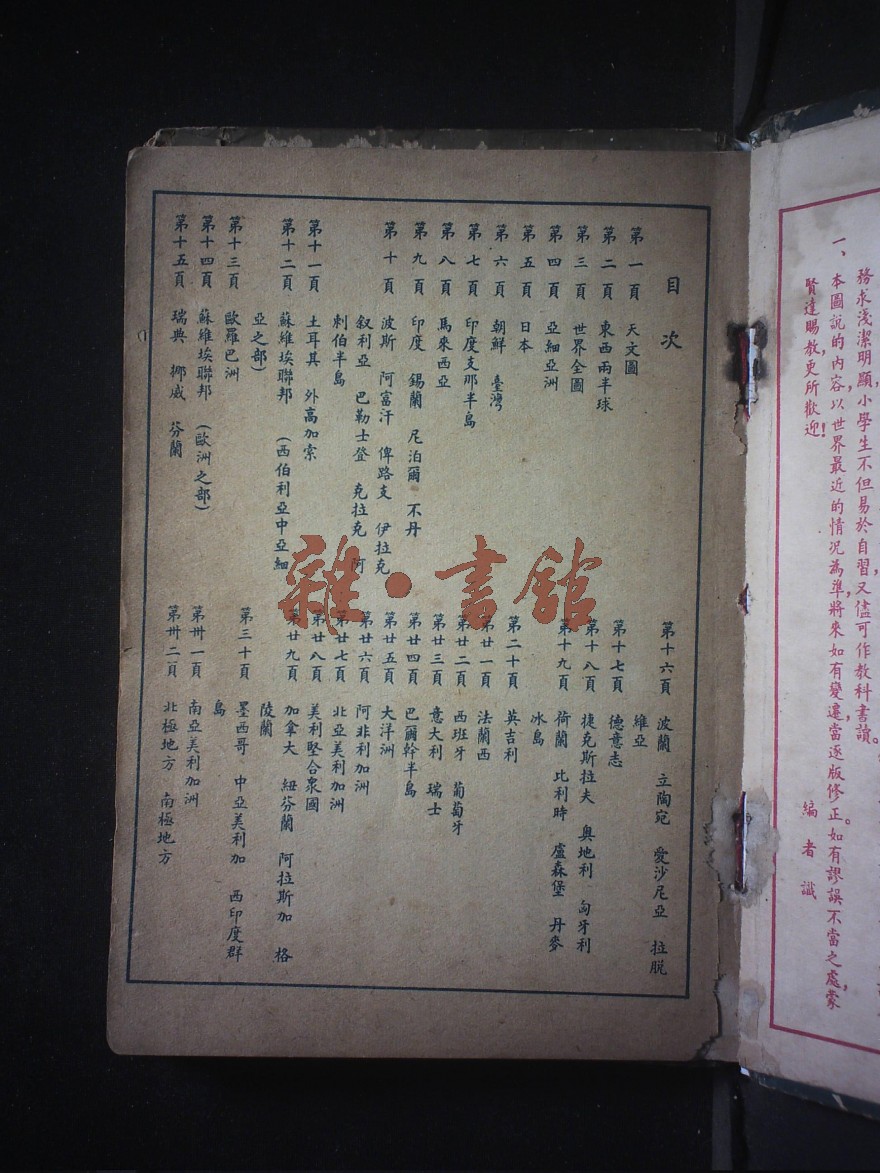 務求淺潔明顯,小學生不但易於自習,又儘可作教科書讀。
一、本圖說的內容,以世界最近的情況為準,將來如有變遷,當逐版修正。如有謬誤不當之處,蒙
賢達賜教,更所歡迎!
編者識
目次
第一頁 天文圖
第二頁 東西兩半球
第三頁 世界全圖
第四頁 亞細亞洲
第五頁 日本
第六頁 朝鮮 臺灣
第七頁 印度支那半島
第八頁 馬來西亞
第九頁 印度 錫蘭 尼泊爾 不丹
第十頁 波斯 阿富汗 俾路支 伊拉克
叙利亞 巴勒士登 克拉克 阿
剌伯半島
第十一頁 土耳其 外高加索
第十二頁 蘇維埃聯邦 (西伯利亞中亞細
亞之部)
第十三頁 歐羅巴洲
第十四頁 蘇維埃聯邦 (歐洲之部)
第十五頁 瑞典 挪威 芬蘭
第十六頁 波蘭 立陶宛 愛沙尼亞 拉脫
維亞
第十七頁 德意志
第十八頁 捷克斯拉夫 奧地利 匈牙利
第十九頁 荷蘭 比利時 盧森堡 丹麥
冰島
第二十頁 英吉利
第廿一頁 法蘭西
第廿二頁 西班牙 葡萄牙
第廿三頁 意大利 瑞士
第廿四頁 巴爾幹半島
第廿五頁 大洋洲
第廿六頁 阿非利加洲
第廿七頁 北亞美利加洲
第廿八頁 美利堅合衆國
第廿九頁 加拿大 紐芬蘭 阿拉斯加 格
陵蘭
第三十頁 墨西哥 中亞美利加 西印度群
島
第卅一頁 南亞美利加洲
第卅二頁 北極地方 南極地方
雜·書館